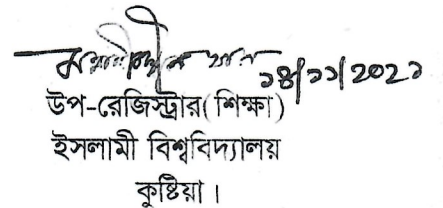 ১৪/১১/2021
উপ-রেজিস্ট্রার(শিক্ষা)
ইসলামী বিশ্ববিদ্যালয়
কুষ্টিয়া।